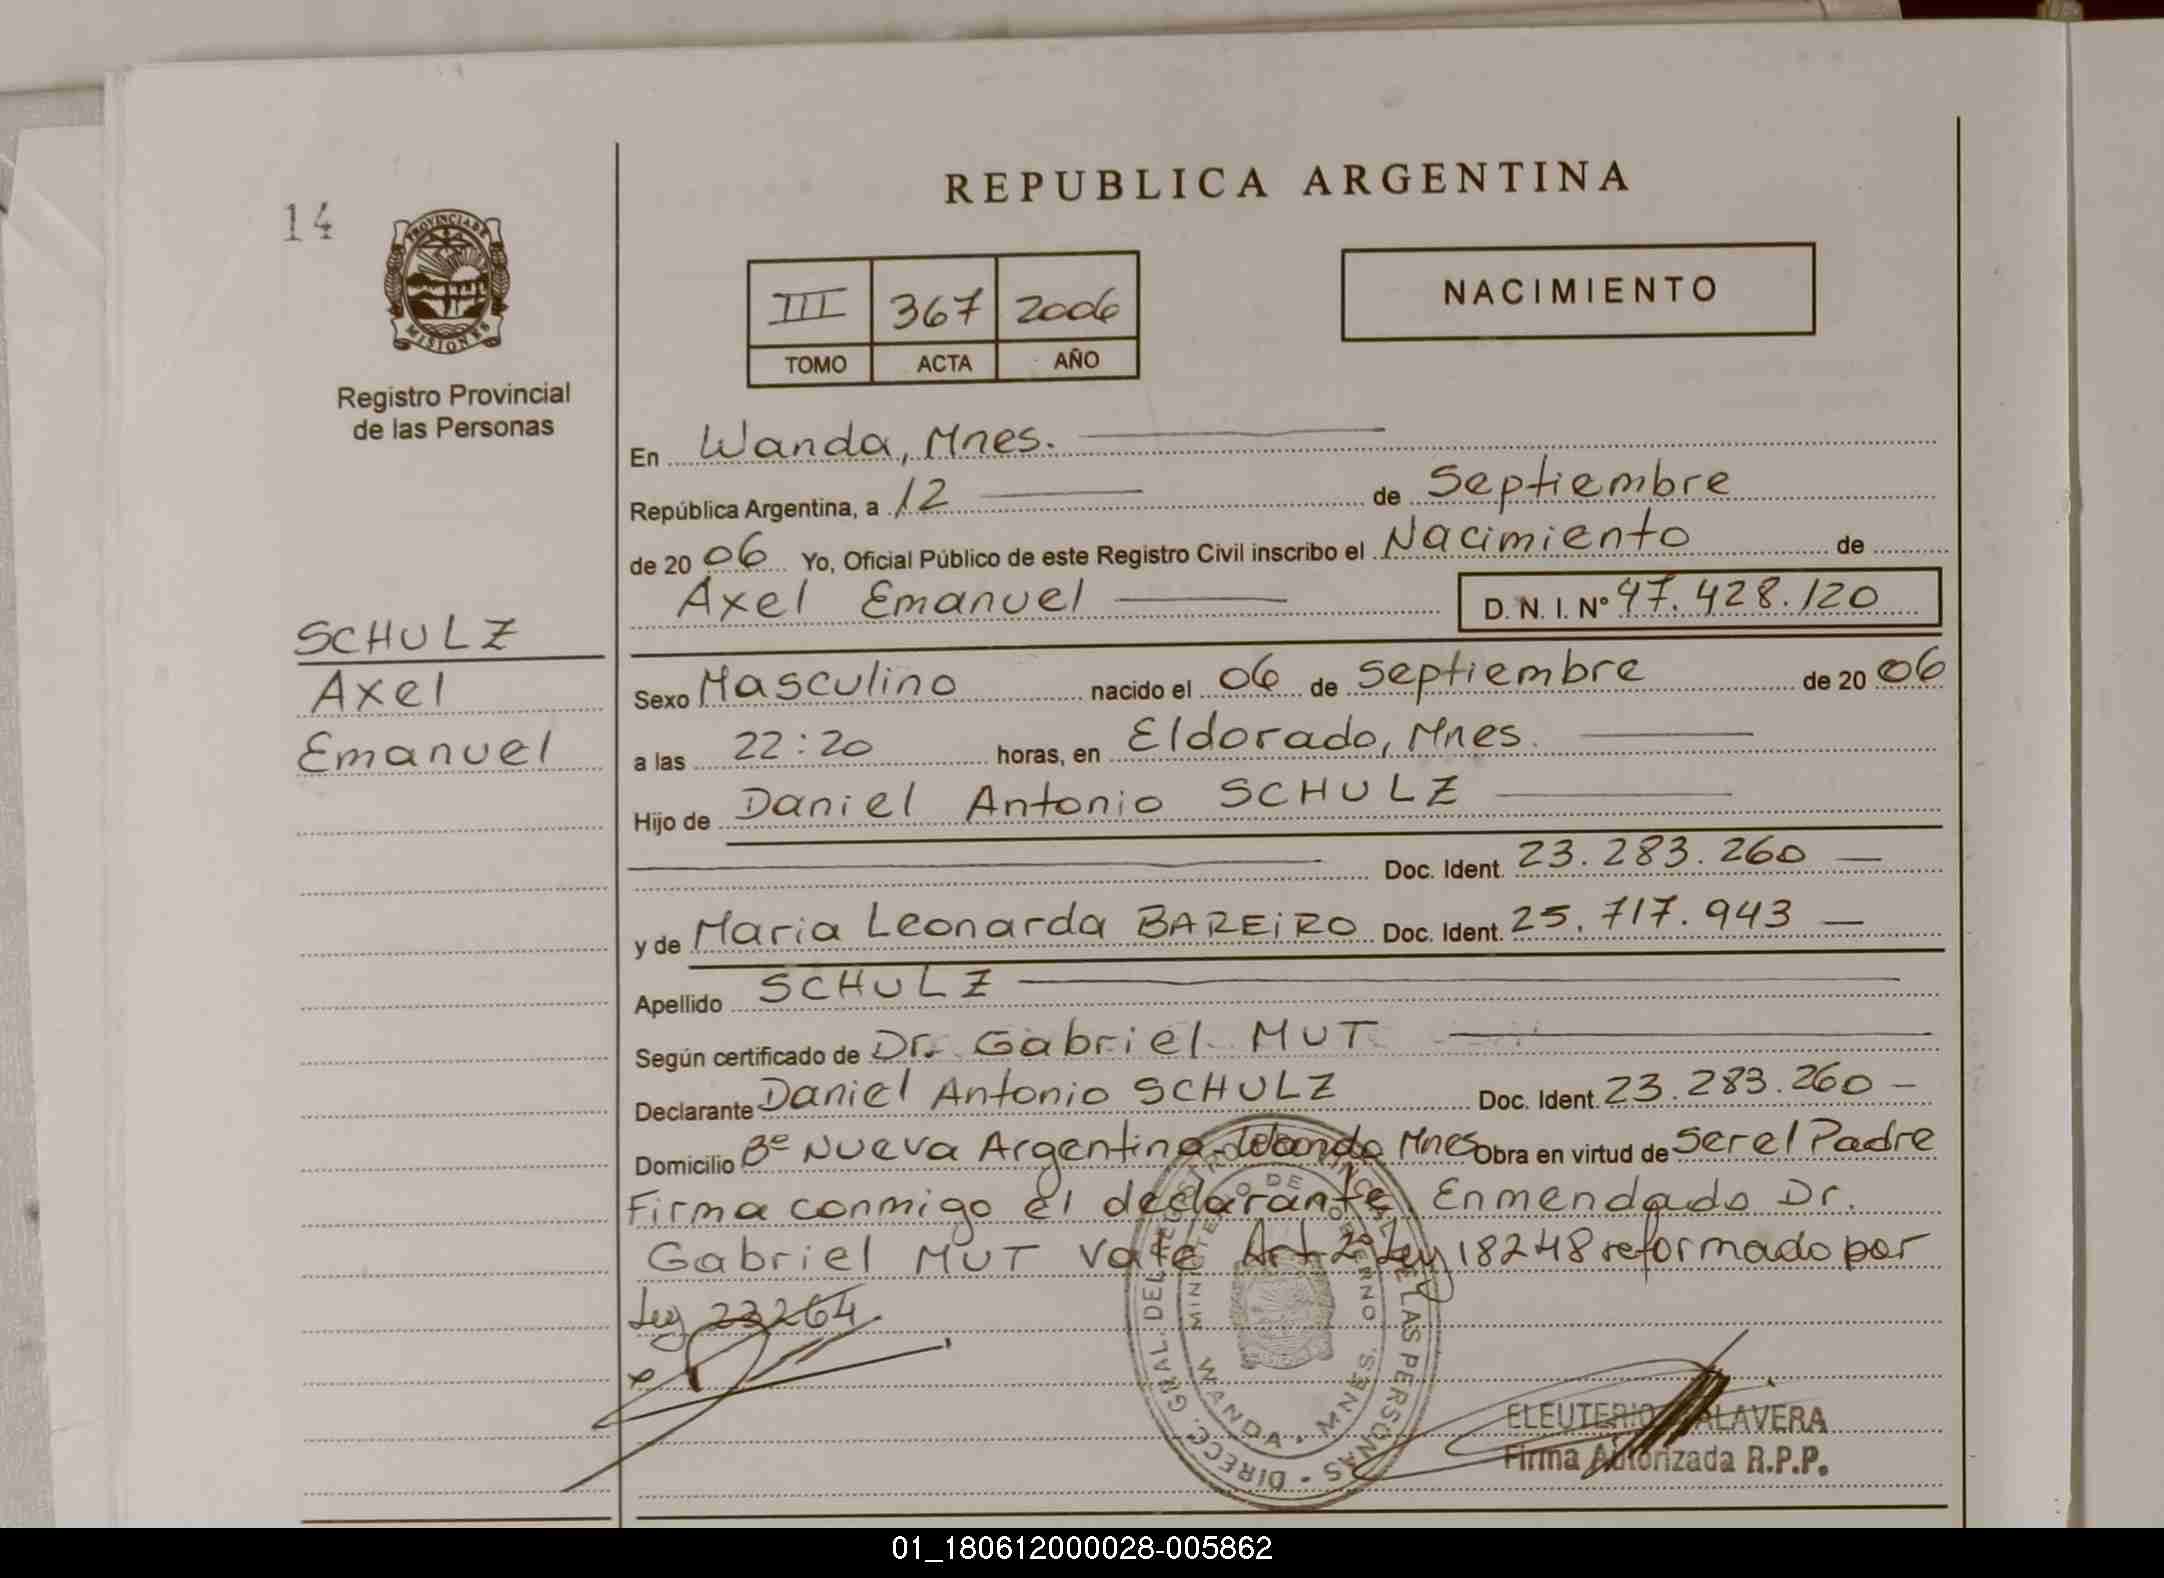 REPUBLICA ARGENTINA
14
PROVINCIA DE
MISIONES
Registro Provincial
de las Personas
III 367 2006
TOMO ACTA AÑO
NACIMIENTO
En Wanda, Mnes.
República Argentina, a 12 de Septiembre
de 20 06 Yo, Oficial Público de este Registro Civil inscribo el Nacimiento de
Axel Emanuel D. N. I. Nº 47.428.120
SCHULZ
Axel
Emanuel
Sexo Masculino nacido el 06 de Septiembre de 20 06
a las 22:20 horas, en Eldorado, Mnes.
Hijo de Daniel Antonio SCHULZ
Doc. Ident. 23.283.260
y de Maria Leonarda BAREiRO Doc. Ident. 25.717.943
Apellido SCHULZ
Según certificado de Dr. Gabriel MUT
Declarante Daniel Antonio SCHULZ Doc. Ident. 23.283.260
Domicilio Bº Nueva Argentina-Wanda Mnes Obra en virtud de Ser el Padre
Firma conmigo el declarante. Enmendado Dr.
Gabriel MUT Vale Art 2º Ley 18248 reformado por
Ley 23264
DIRECC. GRAL. DEL REGISTRO PROVINCIAL DE LAS PERSONAS
MINISTERIO DE GOBIERNO
WANDA - MNES.
ELEUTERIO TALAVERA
Firma Autorizada R.P.P.
01_180612000028-005862